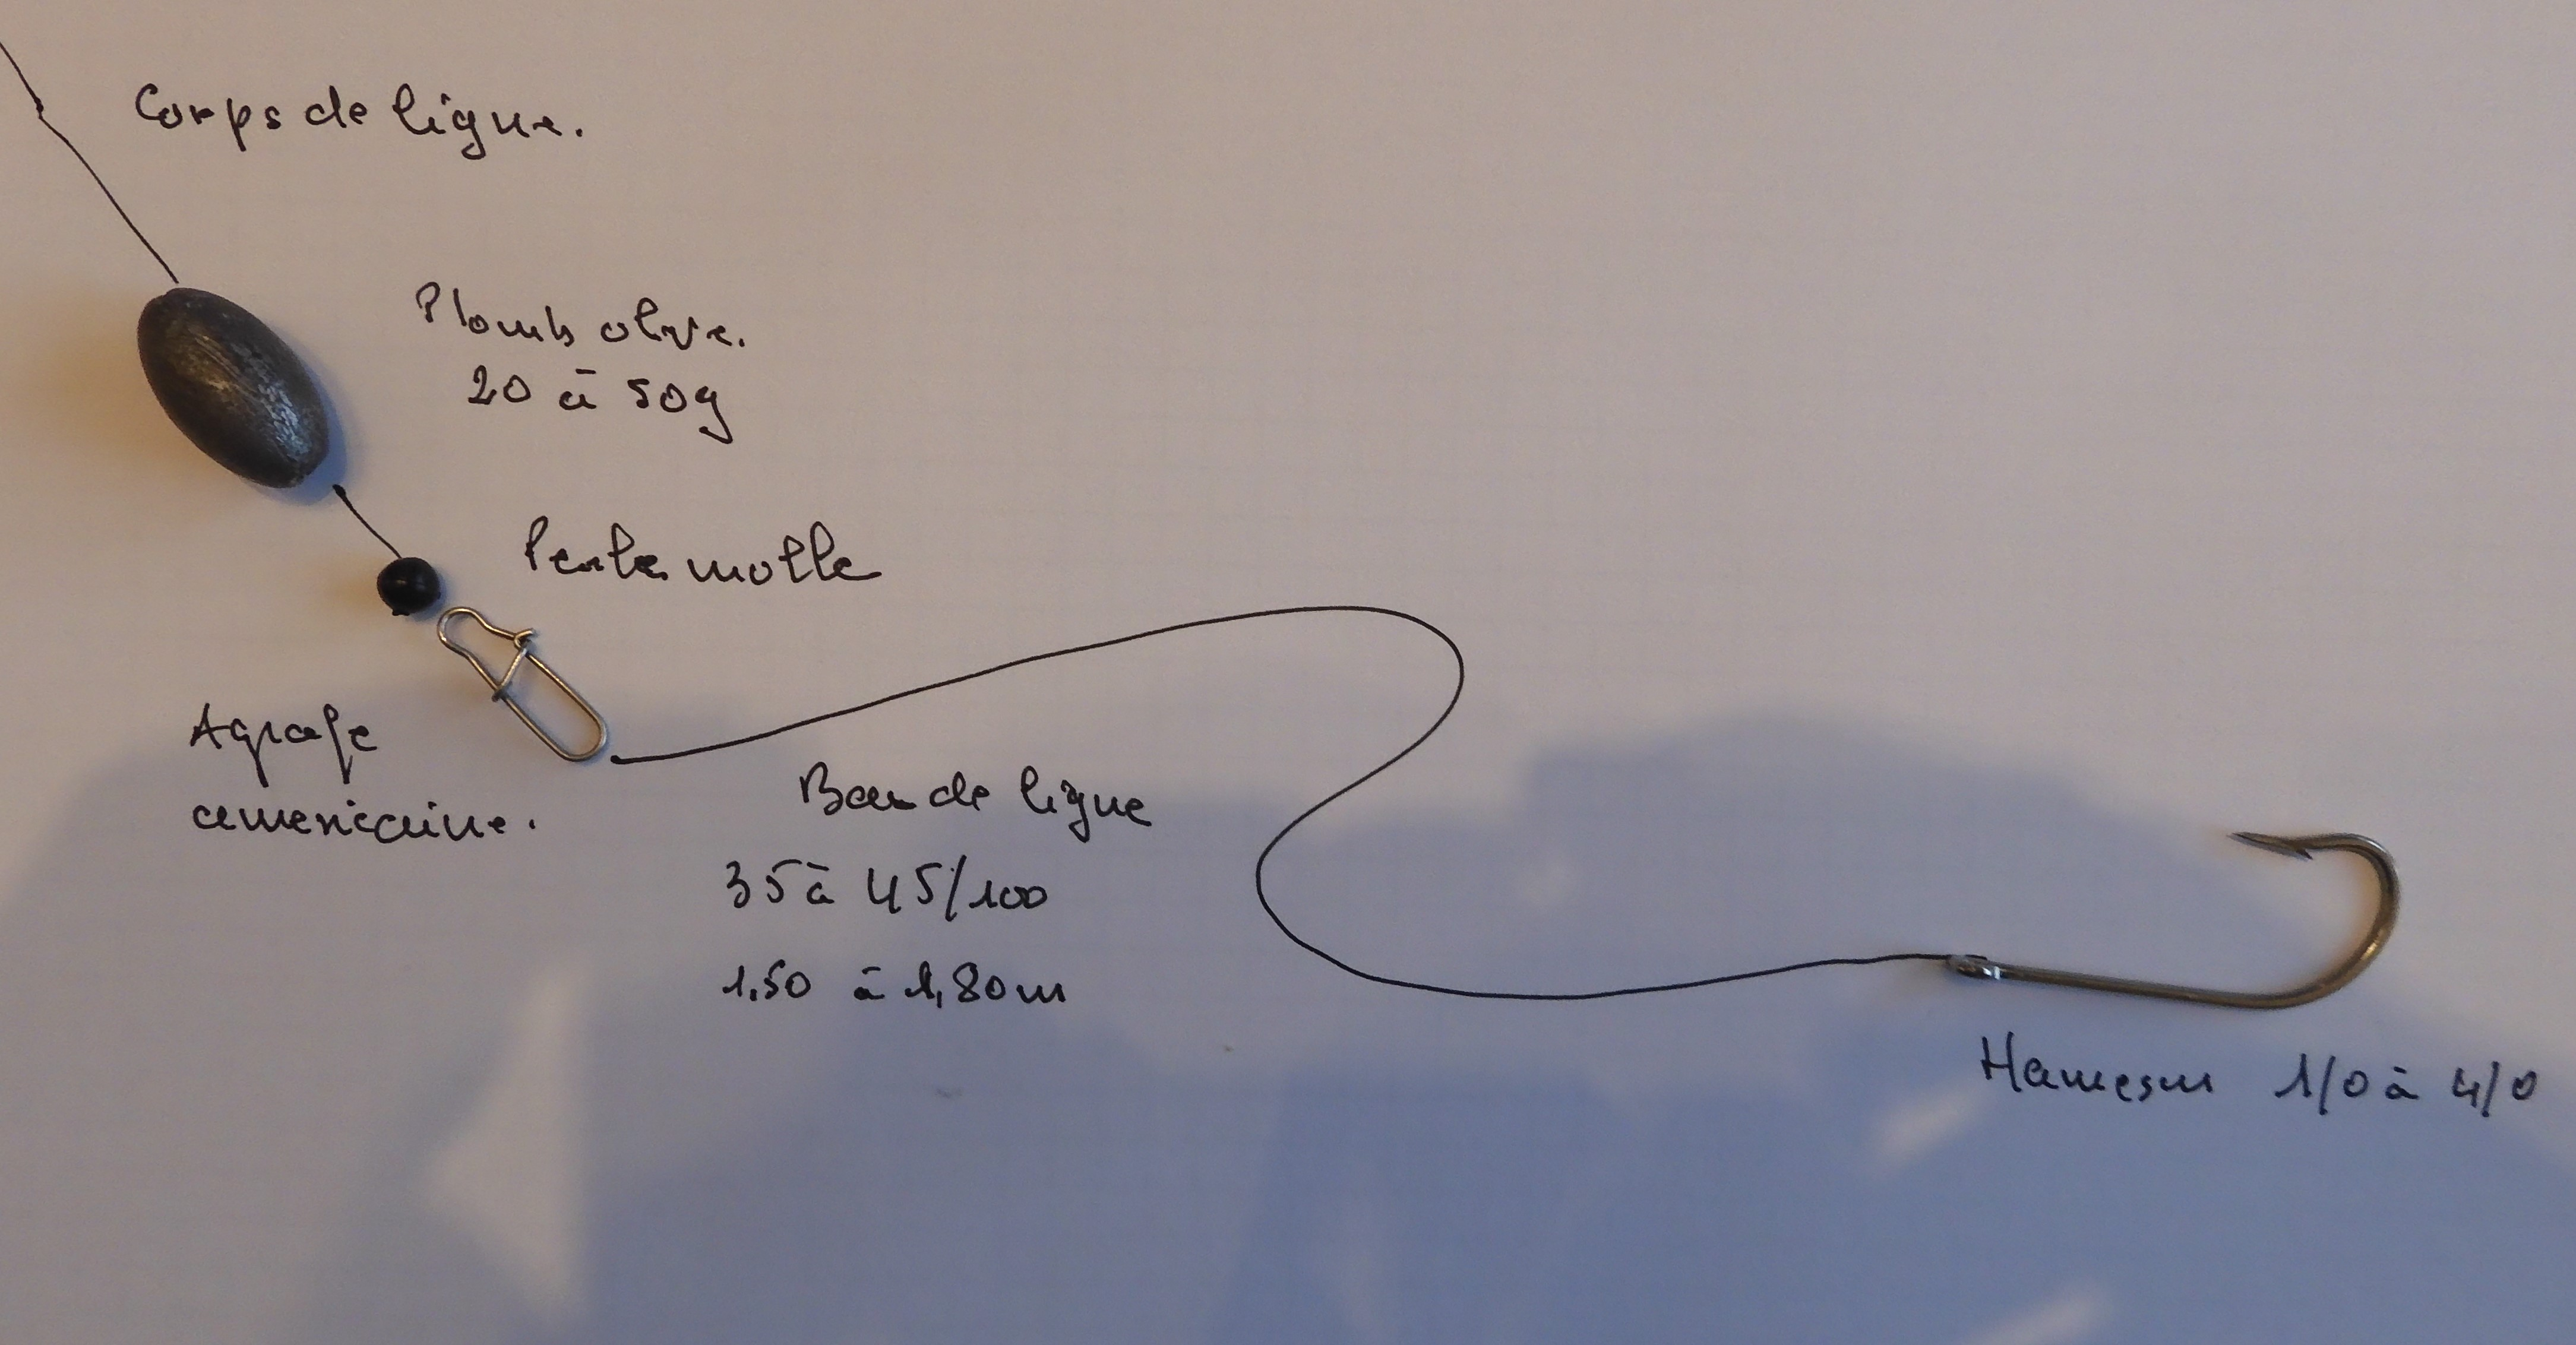 Corps de ligne.
Plomb olive.
20 à 50g
Perle molle
Agrafe
américaine.
Bas de ligne
35 à 45/100
1,50 à 1,80m
Hameçon 1/0 à 4/0